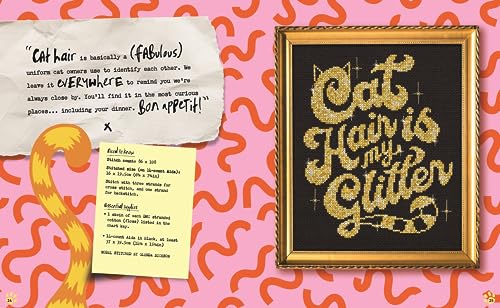 "Cat hair is basically a (fabulous)
uniform cat owners use to identify each other. We
leave it EVERYWHERE to remind you we're
always close by. You'll find it in the most curious
places... including your dinner. Bon appetit!"
x
Need to know
Stitch count: 86 x 108
Stitched size (on 14-count Aida):
Stitch with three strands for
cross stitch, and one strand
for backstitch.
Essential supplies
• 1 skein of each DMC stranded
cotton (floss) listed in the
chart key.
• 14-count Aida in black, at least
MODEL STITCHED BY
Cat
Hair is
my
Glitter